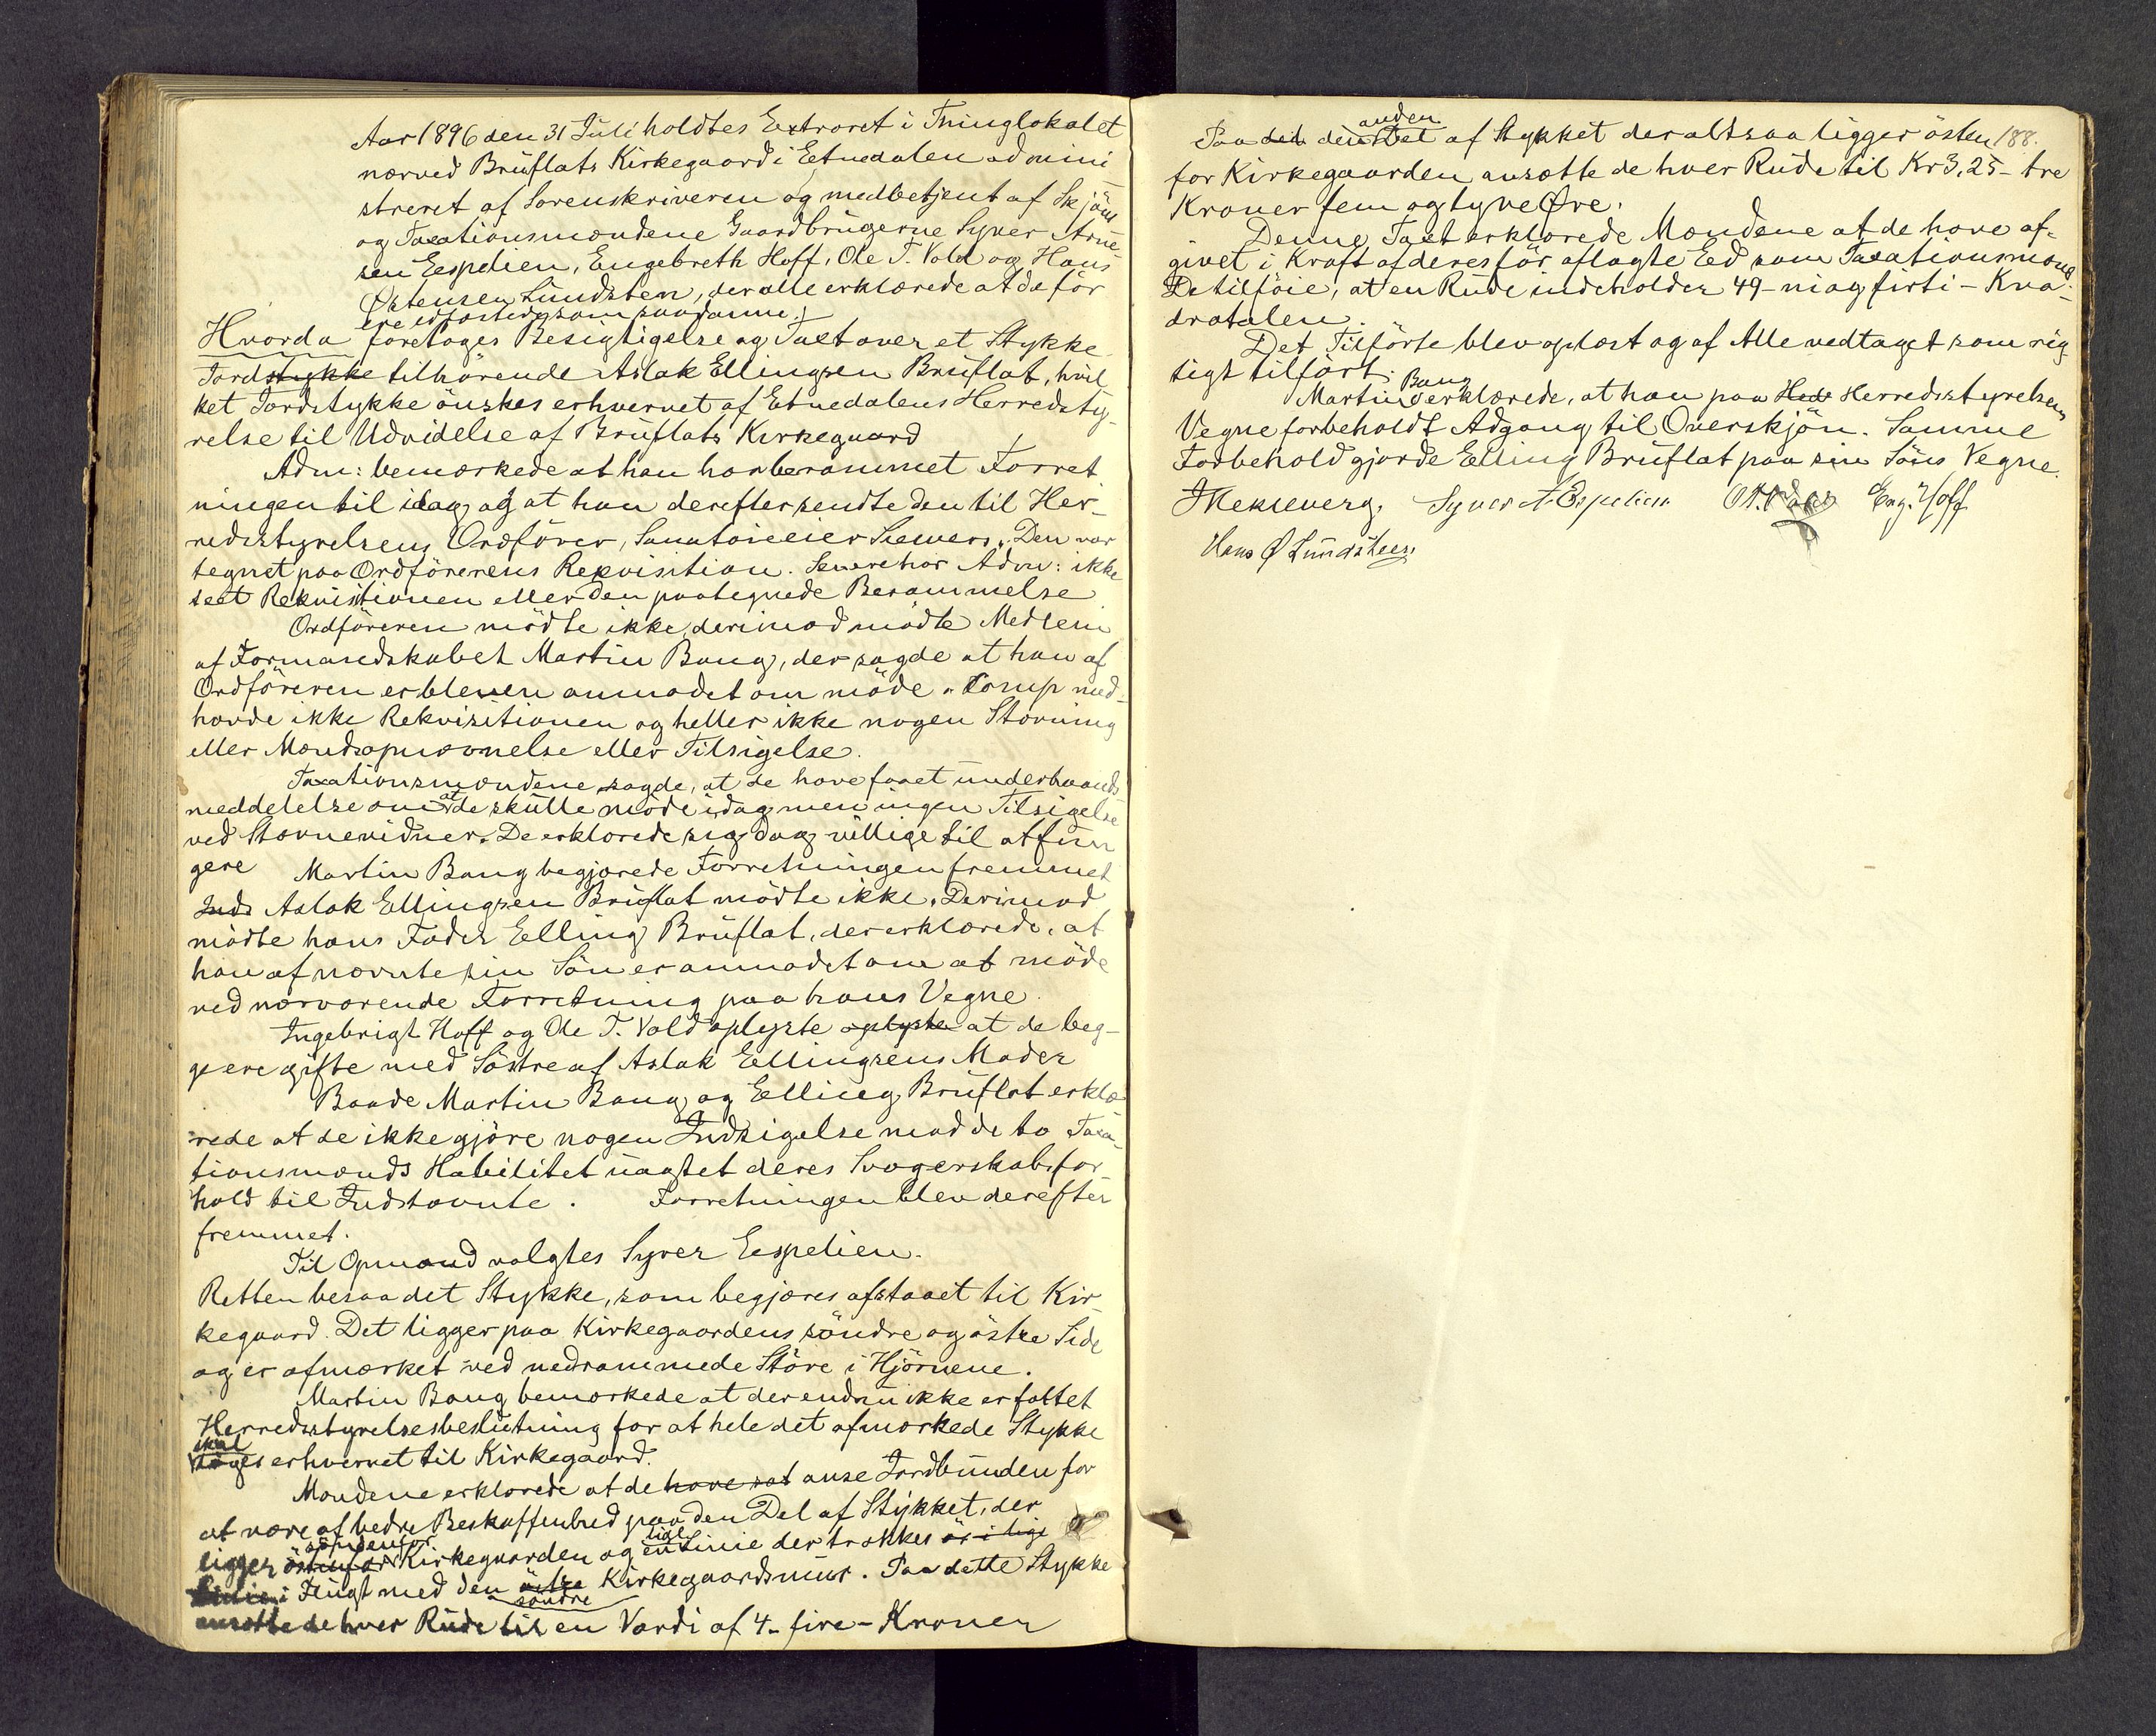 Aar 1896 den 31 Juli holdtes Extraret i Thinglokalet
nærved Brüflats Kirkegaard i Etnedalen admini
streret af Sorenskriveren og medbetjent af Skjöns
og Taxationsmændene Gaardbrügerne Syver Arne
sen Espelien, Engebreth Hoff, Ole T. Vold og Hans
Østensen Lündsten, der alle erklærede at de för
ere edfæstede som saadanne.
Hvorda foretoges Besigtigelse og Taxt over et Stykke
Jordstykke tilhörende Aslak Ellingsen Brüflat, hvil
ket Jordstykke önskes erhvervet af Etnedalens Herredsty-
relse til Udvidelse af Brüflats Kirkegaard
Adm: bemærkede at han har berammet Forret
ningen til idag og at han derefter sendte den til Her-
redsstyrelsens Ordförer, Sanatorieeier Siewers. Den var
tegnet paa Ordförerens Rekvisition. Senere har Adm: ikke
seet Rekvisitionen eller den paategnede Berammelse
Ordföreren mödte ikke, derimod mödte Medlem
af Formandskabet Martin Bang, der sagde at han af
Ordföreren er bleven anmodet om möde. Komp med-
havde ikke Rekvisitionen og heller ikke nogen Stævning
eller Mændsopnævnelse eller Tilsigelse.
Taxationsmændene sagde, at de have faaet ünderhaands
meddelelse om at de skülle möde idag men ingen Tilsigelse
ved Stævnevidner. De erklærede sig dog villige til at fün
gere Martin Bang begjærede Forretningen fremmet
Inds Aslak Ellingsen Brüflat mödte ikke. Derimod
mödte hans Fader Elling Brüflat, der erklærede, at
han af nævnte sin Sön er anmodet om at möde
ved nærværende Forretning paa hans Vegne.
Ingebrigt Hoff og Ole T. Vold oplyste oplyste at de beg-
ge ere gifte med Söstre af Aslak Ellingsens Moder
Baade Martin Bang og Elling Brüflat erklæ
rede at de ikke gjöre nogen Indsigelse mod de to Taxa-
tionsmænds Habilitet üagtet deres Svogerskabsfor
hold til Indstævnte. Forretningen blev derefter
fremmet.
Til Opmand valgtes Syver Espelien.
Retten besaa det Stykke, som begjæres afstaaet til Kir-
kegaard. Det ligger paa Kirkegaardens söndre og östre Side
og er afmærket ved nedrammede Störe i Hjörnene.
Martin Bang bemærkede at der endnü ikke er fattet
Herredsstyrelsesbeslütning for at hele det afmærkede Stykke
skal
söges erhvervet til Kirkegaard.
Mændene erklærede at de have sat anse Jordbünden for
at være af bedre Beskaffenhed paa den Del af Stykket, der
söndenfor lige
ligger östenfor Kirkegaarden og en Linie der trækkes ös i lige
Linie i Flügt med den östre Kirkegaardsmür. Paa dette Stykke
söndre
ansætte de hver Rüde til en Værdi af 4- fire - Kroner
anden
188.
Paa del den Del af Stykket der altsaa ligger östen
for Kirkegaarden ansætte de hver Rüde til Kr 3,25 - tre
Kroner fem og tyve Øre.
Denne Taxt erklærede Mændene at de have af-
givet i Kraft af deres för aflagte Eed som Taxationsmænd
De tilföie, at en Rüde indeholder 49 - ni og firti - Kva-
dratalen.
Det Tilförte blev oplæst og af Alle vedtaget som rig
tigt tilfört.
Bang
Martin erklærede, at han paa Hedr Herredsstyrelsens
Vegne forbeholdt Adgang til Overskjön. Samme
Forbehold gjorde Elling Brüflat paa sin Söns Vegne.
Syver A. Espelien O.T. Vold Eng. Hoff
Hans Ø Lündsteen